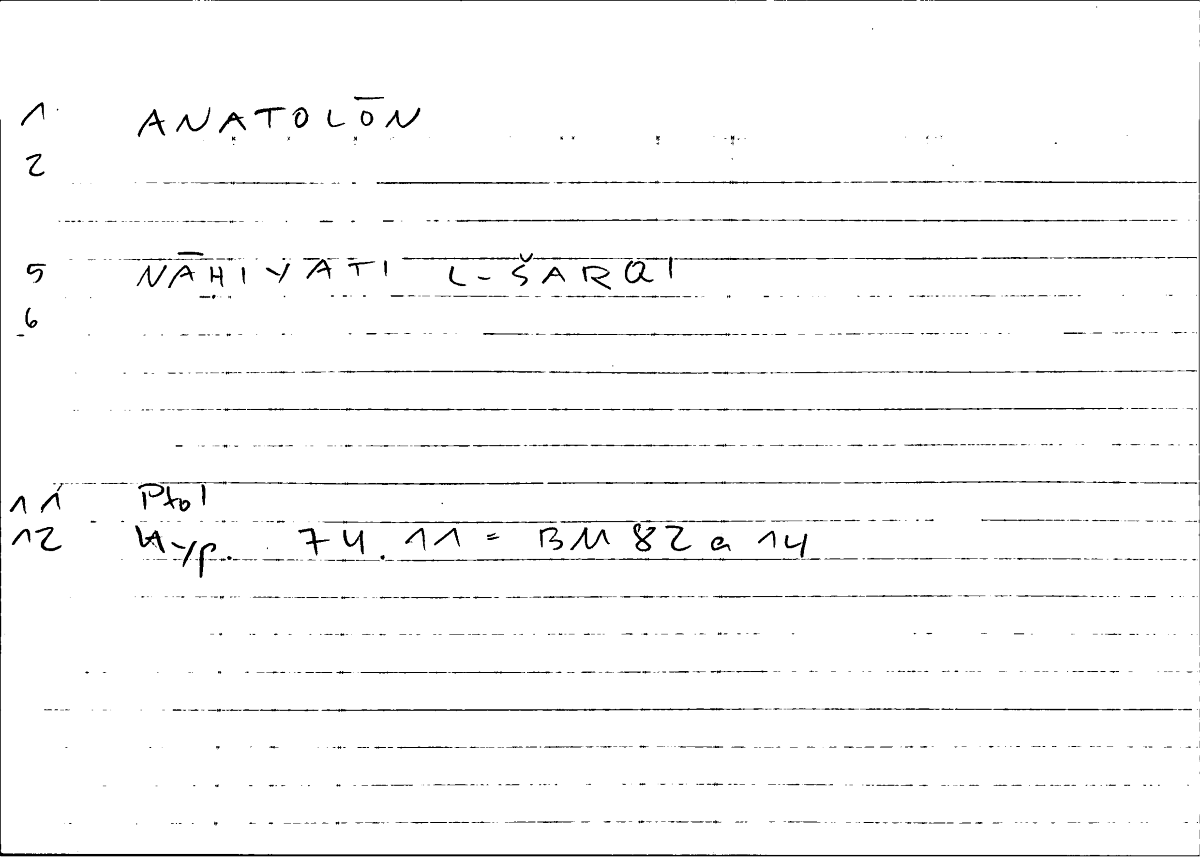 1 ANATOLŌN
2
5 NĀHIYATI L-ŠARQI
6
11 Ptol
12 Hyp. 74.11 = BM 82 a 14